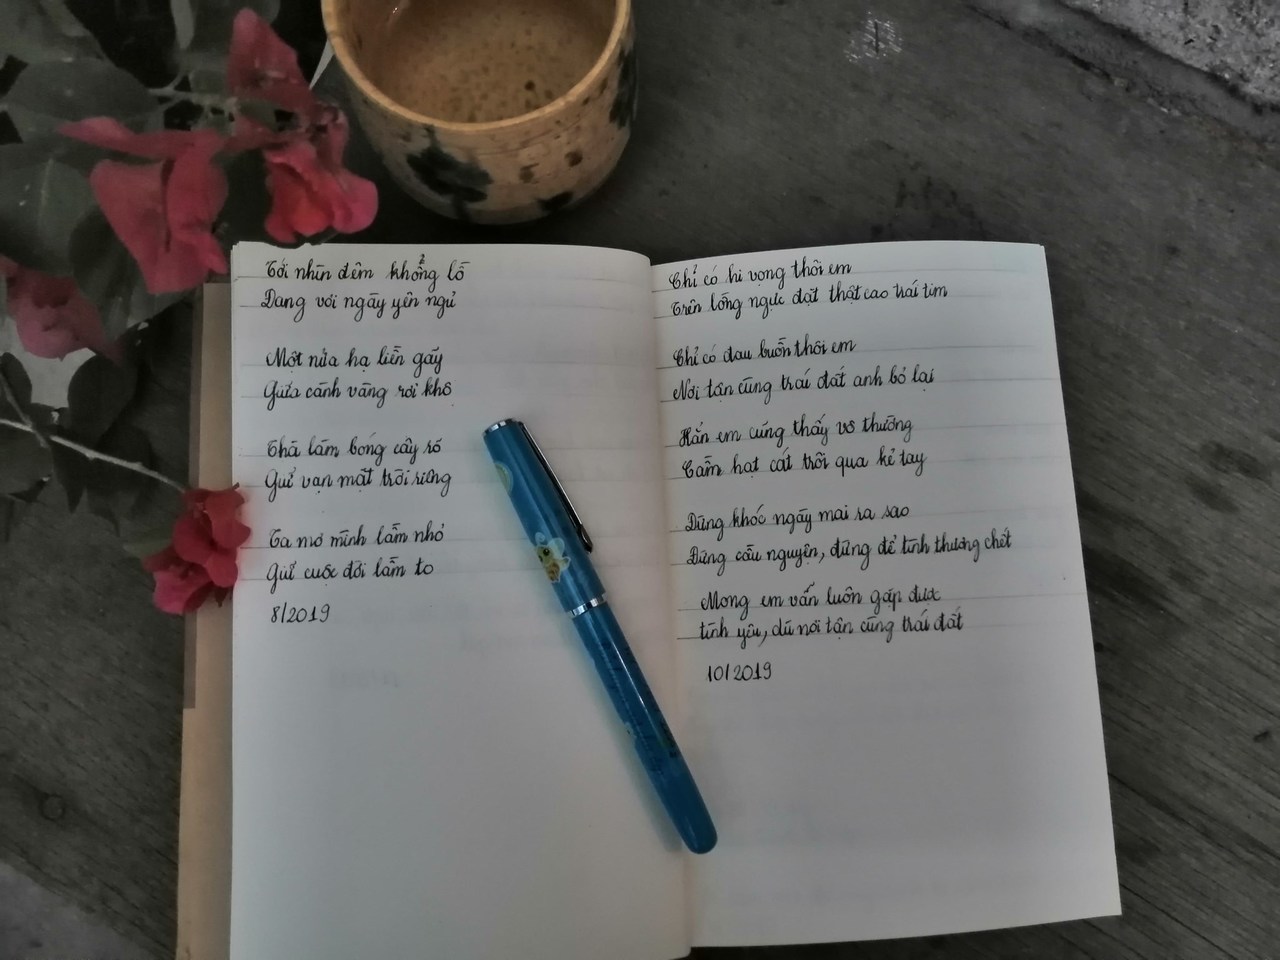 Tới nhìn đêm khổng lồ
Dang với ngày yên ngủ
Một nửa hạ liền gãy
Giữa cánh vàng rơi khô
Thà làm bóng cây số
Giữ vạn mặt trời riêng
Ta mơ mình lầm nhỏ
Giữ cuộc đời lầm to
8/2019
Chỉ có hi vọng thôi em
Trên lồng ngực đặt thật cao trái tim
Chỉ có đau buồn thôi em
Nơi tận cùng trái đất anh bỏ lại
Hẳn em cũng thấy vô thường
Cầm hạt cát trôi qua kẽ tay
Đừng khóc ngày mai ra sao
Đừng cầu nguyện, đừng để tình thương chết
Mong em vẫn luôn gặp được
tình yêu, dù nơi tận cùng trái đất
10/2019